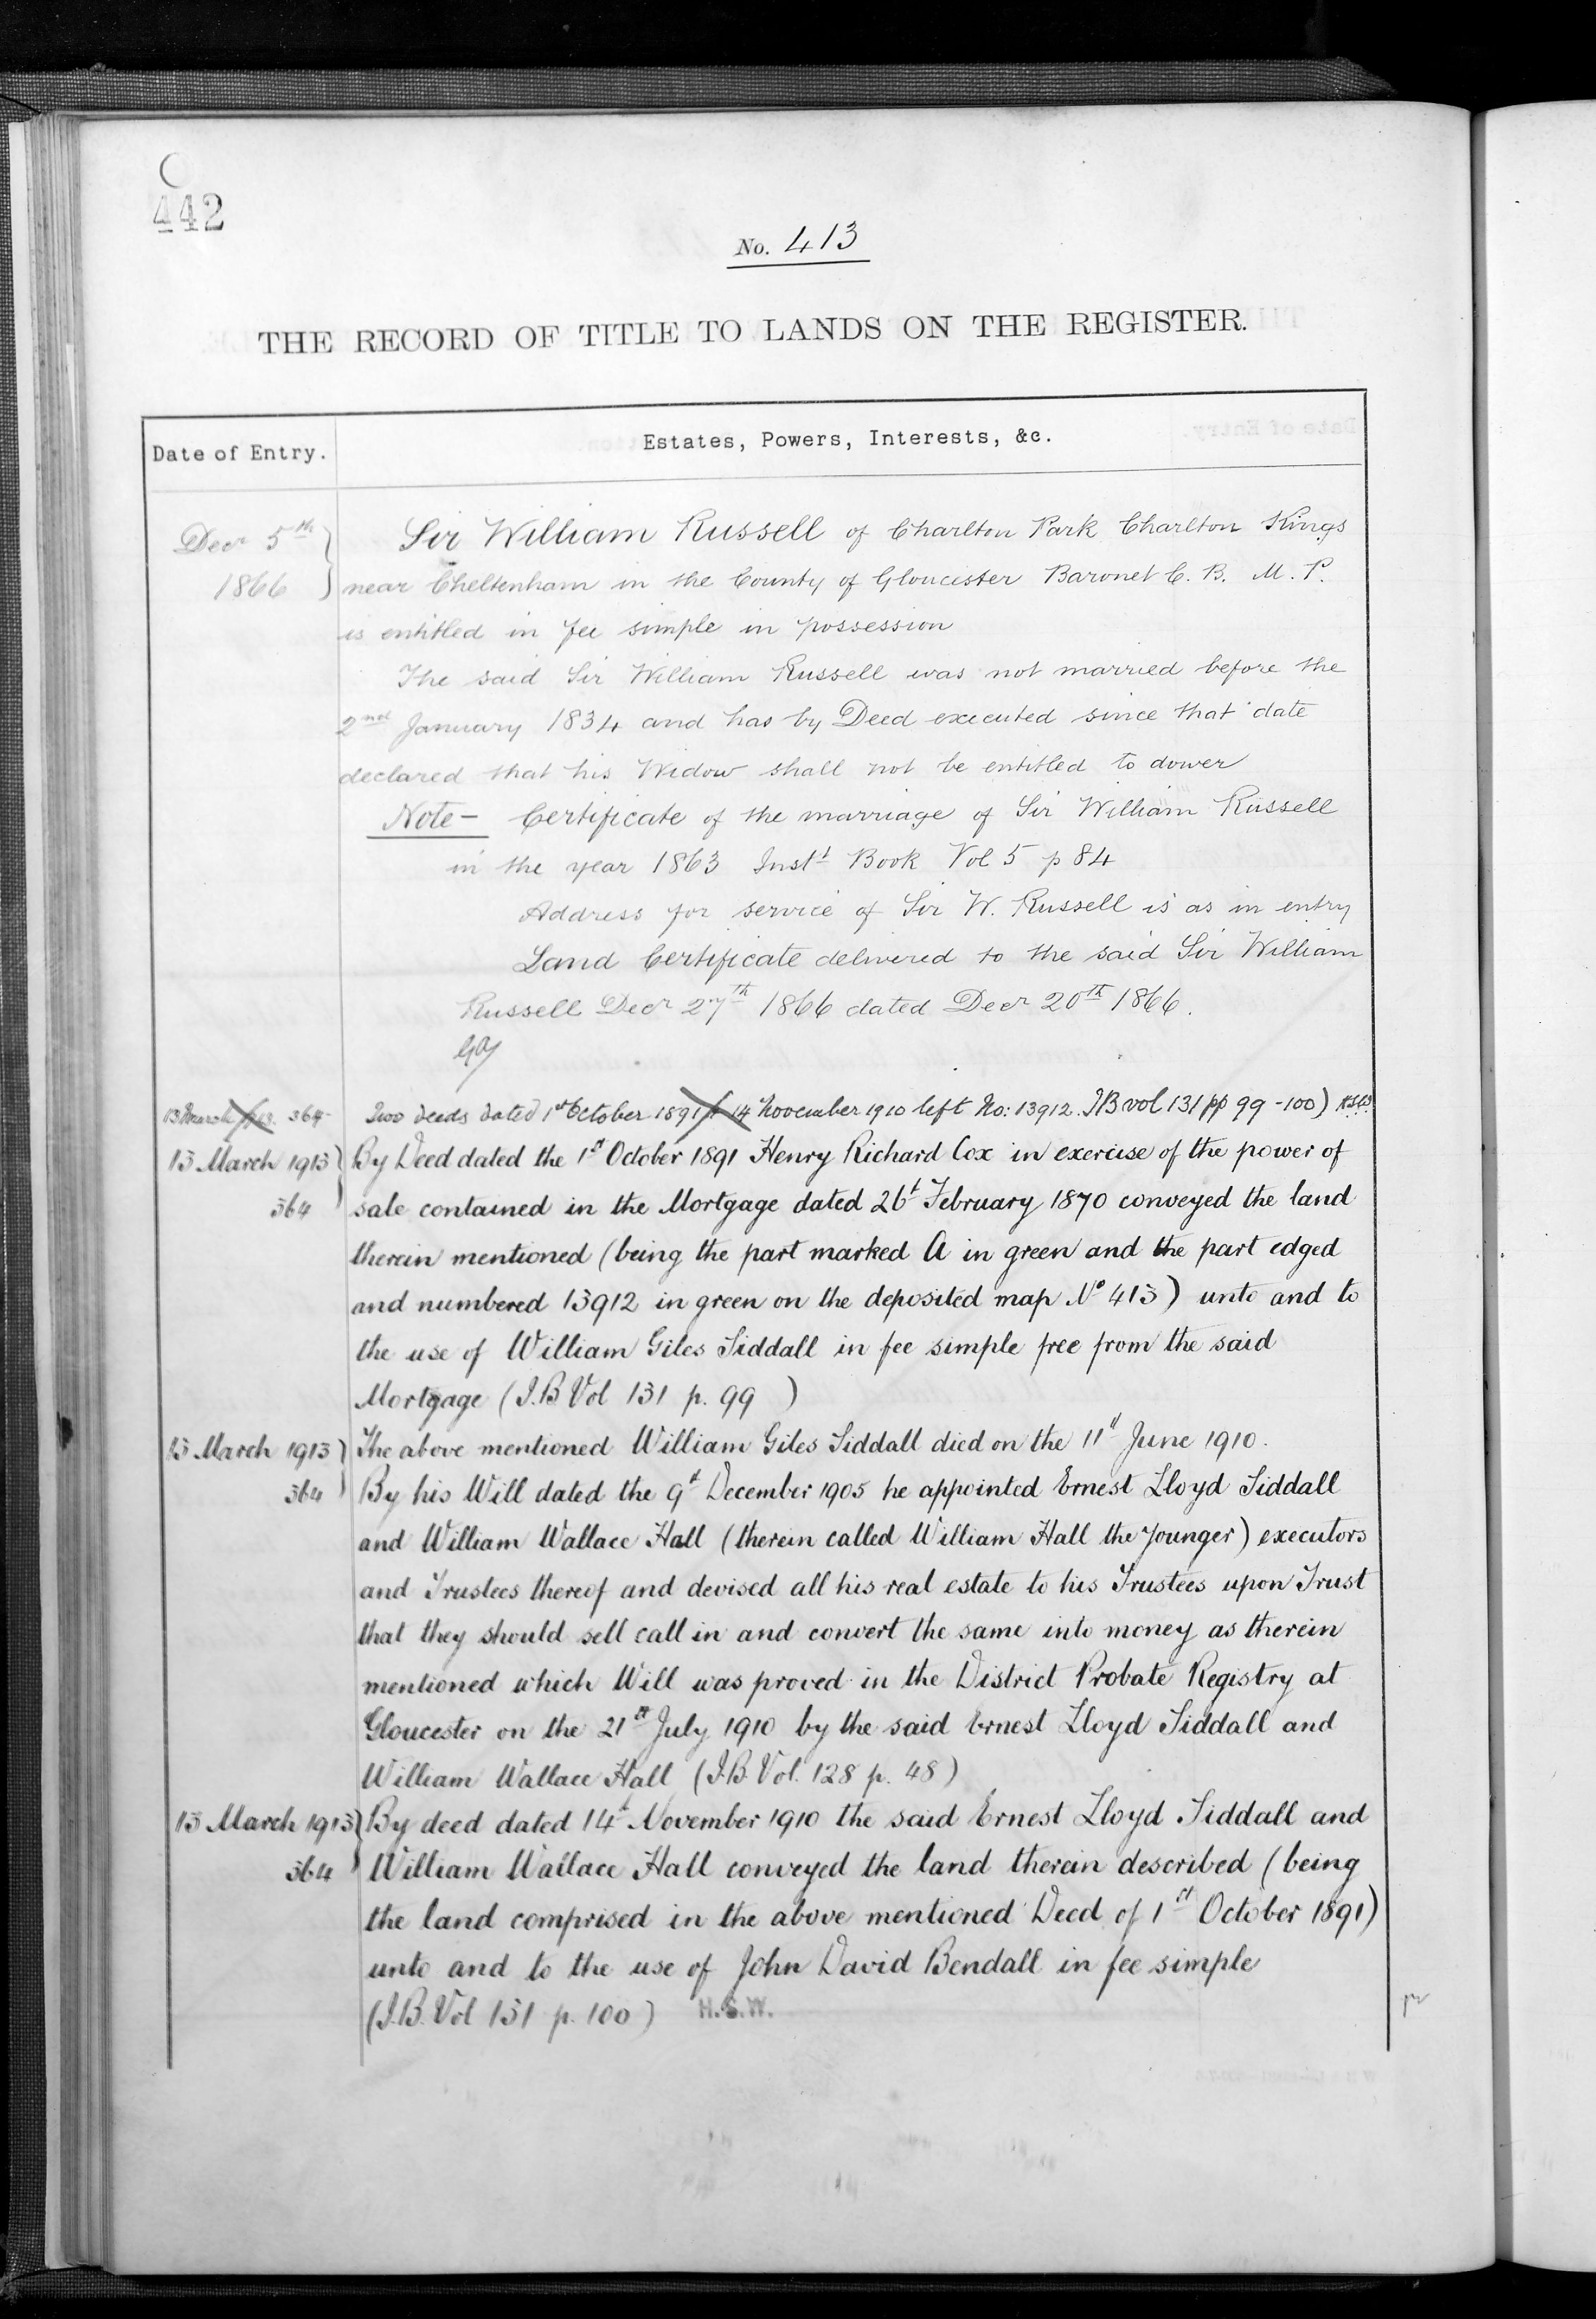 442
No. 413
THE RECORD OF TITLE TO LANDS ON THE REGISTER.
Date of Entry.
Estates, Powers, Interests, &c.
Decr 5th Sir William Russell of Charlton Park Charlton Kings
1866 near Cheltenham in the County of Gloucester Baronet C. B. M. P.
is entitled in fee simple in possession
The said Sir William Russell was not married before the
2nd January 1834 and has by Deed executed since that date
declared that his Widow shall not be entitled to dower
Note - Certificate of the marriage of Sir William Russell
in the year 1863 Inst Book Vol 5 p 84
Address for service of Sir W. Russell is as in entry
Land Certificate delivered to the said Sir William
Russell Decr 27th 1866 dated Decr 20th 1866.
13 March 1913. 364 Two deeds dated 1st October 1891 & 14 November 1910 left No: 13912. IB vol 131 pp 99-100)
13 March 1913) By Deed dated the 1st October 1891 Henry Richard Cox in exercise of the power of
364 sale contained in the Mortgage dated 26t February 1870 conveyed the land
therein mentioned (being the part marked A in green and the part edged
and numbered 13912 in green on the deposited map No 413) unto and to
the use of William Giles Siddall in fee simple free from the said
Mortgage (I.B Vol 131 p. 99 )
13 March 1913) The above mentioned William Giles Siddall died on the 11t June 1910.
364 ) By his Will dated the 9t December 1905 he appointed Ernest Lloyd Siddall
and William Wallace Hall (therein called William Hall the Younger) executors
and Trustees thereof and devised all his real estate to his Trustees upon Trust
that they should sell call in and convert the same into money as therein
mentioned which Will was proved in the District Probate Registry at
Gloucester on the 21st July 1910 by the said Ernest Lloyd Siddall and
William Wallace Hall (I.B. Vol. 128 p. 48)
13 March 1913) By deed dated 14t November 1910 the said Ernest Lloyd Siddall and
364 ) William Wallace Hall conveyed the land therein described (being
the land comprised in the above mentioned Deed of 1st October 1891)
unto and to the use of John David Bendall in fee simple
(I.B. Vol 131 p. 100) H.S.W.